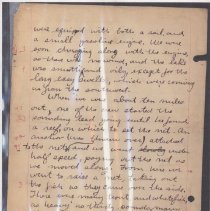 was equipped with both a sail and
a small gasoline engine. We were
soon chugging along with the engine,
as there was no wind, and the lake
was smooth and only except for the
long, easy swells, which were coming
in from the southwest.
When we were about two miles
out, one of the men started to use a
sounding lead, until he found
a reef on which to set the net. An
anchor was thrown over, attached
to the net, and we went slowly under
half speed, paying out the net as
we moved along. Then we
went to raise a net, picking out
the fish as they came over the side.
There were many trout and whitefish,
as many as thirty pounds, many